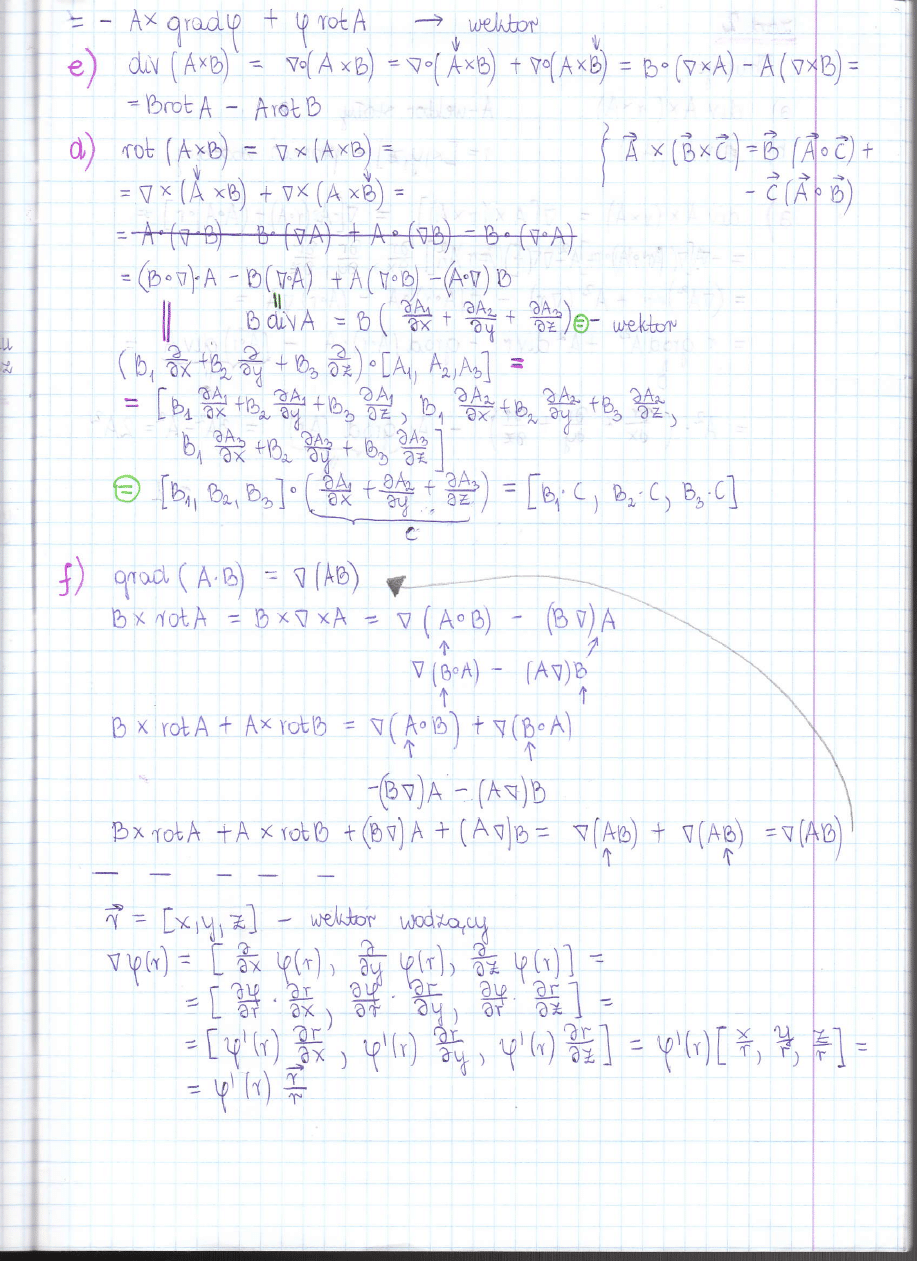 = - A × grad φ + φ rot A → wektor
e) div (A×B) = ∇∘(A×B) = ∇∘(A×B) + ∇∘(A×B) = B∘(∇×A) - A(∇×B) =
= B rot A - A rot B
d) rot (A×B) = ∇×(A×B) =
{ A⃗ × (B⃗×C⃗) = B⃗ (A⃗∘C⃗) +
- C⃗(A⃗∘B⃗)
= ∇×(A×B) + ∇×(A×B) =
= A∘(∇∘B) - B∘(∇A) + A∘(∇B) - B∘(∇∘A)
= (B∘∇)·A - B(∇∘A) + A(∇∘B) - (A∘∇)B
|| B div A = B ( ∂A₁/∂x + ∂A₂/∂y + ∂A₃/∂z ) = - wektor
(B₁ ∂/∂x + B₂ ∂/∂y + B₃ ∂/∂z)∘[A₁, A₂, A₃] =
= [B₁ ∂A₁/∂x + B₂ ∂A₁/∂y + B₃ ∂A₁/∂z, B₁ ∂A₂/∂x + B₂ ∂A₂/∂y + B₃ ∂A₂/∂z,
B₁ ∂A₃/∂x + B₂ ∂A₃/∂y + B₃ ∂A₃/∂z]
= [B₁, B₂, B₃]∘(∂A₁/∂x + ∂A₂/∂y + ∂A₃/∂z) = [B₁·C, B₂·C, B₃·C]
C
f) grad (A·B) = ∇(AB)
B × rot A = B×∇×A = ∇(A∘B) - (B∇)A
∇(B∘A) - (A∇)B
B × rot A + A × rot B = ∇(A∘B) + ∇(B∘A)
-(B∇)A - (A∇)B
B × rot A + A × rot B + (B∇)A + (A∇)B = ∇(AB) + ∇(AB) = ∇(AB)
— — — — —
r⃗ = [x, y, z] - wektor wodzący
∇φ(r) = [ ∂/∂x φ(r), ∂/∂y φ(r), ∂/∂z φ(r)] =
= [ ∂φ/∂r · ∂r/∂x, ∂φ/∂r · ∂r/∂y, ∂φ/∂r · ∂r/∂z ] =
= [φ'(r) ∂r/∂x, φ'(r) ∂r/∂y, φ'(r) ∂r/∂z] = φ'(r)[x/r, y/r, z/r] =
= φ'(r) r⃗/r